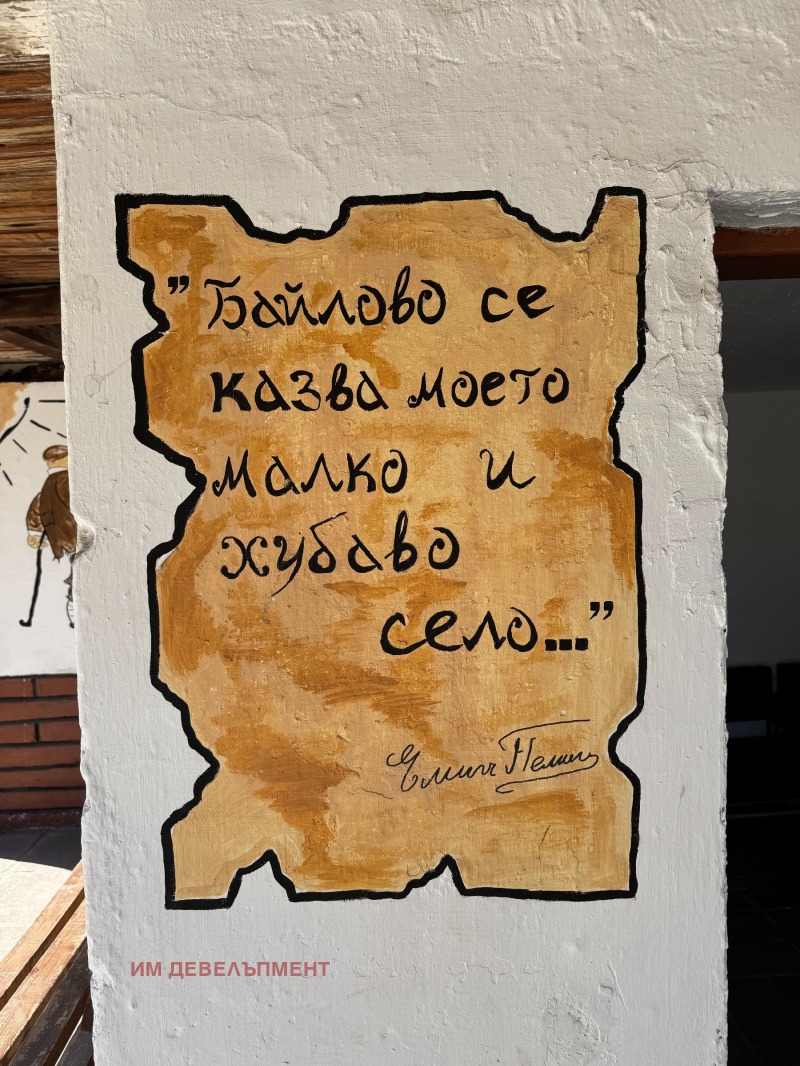 "Байлово се
казва моето
малко и
хубаво
село..."
Елинъ Пелинъ
ИМ ДЕВЕЛЪПМЕНТ